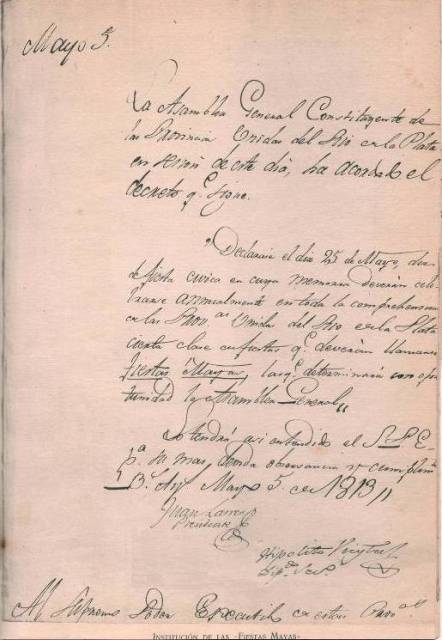 Mayo 5.
La Asamblea General Constituyente de
las Provincias Unidas del Rio de la Plata
en sesion de este dia, ha acordado el
decreto q.e sigue.
"Declarase el dia 25 de Mayo, dia
de fiesta civica en cuya memoria deverán cele-
brarse annualmente en toda la comprehension
de las Prov.as Unidas del Rio de la Plata
cierta clase de fiestas q.e deverán llamarse
fiestas Mayas, las q.e determinará con opor-
tunidad la Asamblea General,,
Lo tendrá asi entendido el S.P.E.
p.a su mas devida observancia y cumplim.to
B.s Ay.s Mayo 5 de 1813,,
Juan Larrea
Presidente
Hipolito Vieytes
Dip.do Sec.o
Al Supremo Poder Executivo de estas Prov.as
INSTITUCIÓN DE LAS «FIESTAS MAYAS»